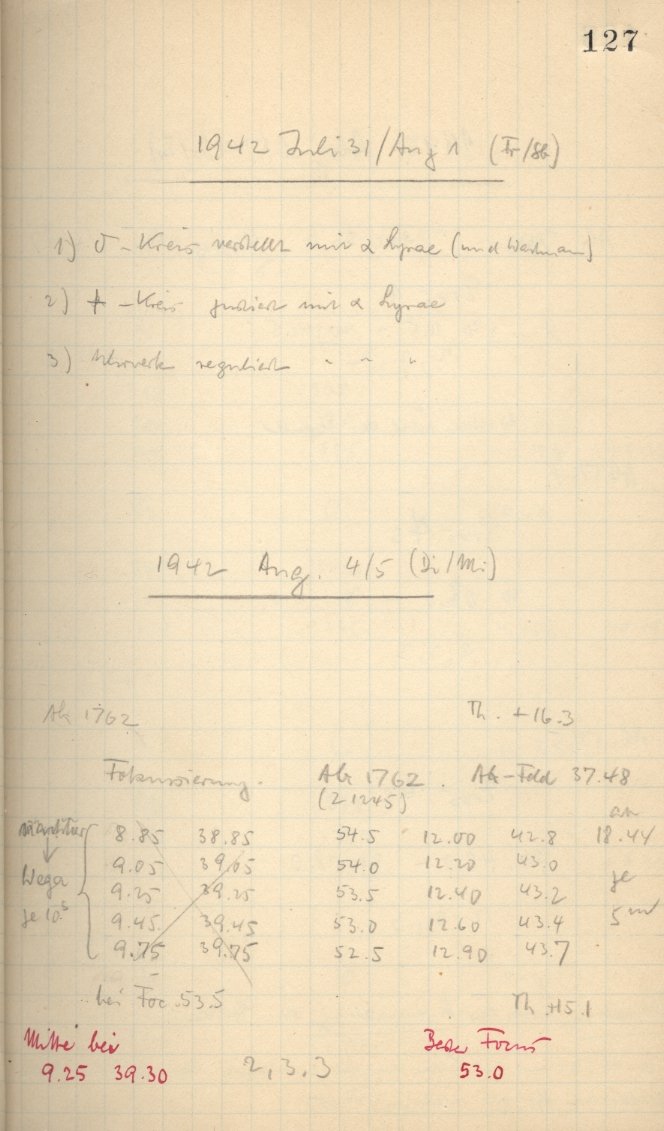 127
1942 Juli 31/Aug 1 (Fr/Sb)
1) δ-Kreis verstellt mit α Lyrae (und Wachmann)
2) t-Kreis justiert mit α Lyrae
3) Uhrwerk reguliert " " "
1942 Aug. 4/5 (Di/Mi)
1762 Th. +16.3
Fokussierung. 1762. -Feld 37.48
(21245)
an
8.85 38.85 54.5 12.00 42.8 18.44
9.05 39.05 54.0 12.20 43.0
Wega 9.25 39.25 53.5 12.40 43.2 je
je 10.s 9.45 39.45 53.0 12.60 43.4 5 m
9.75 39.75 52.5 12.90 43.7
bei Foc. 53.5 Th +15.1
Mitte bei Focus
9.25 39.30 2, 3. 3 53.0